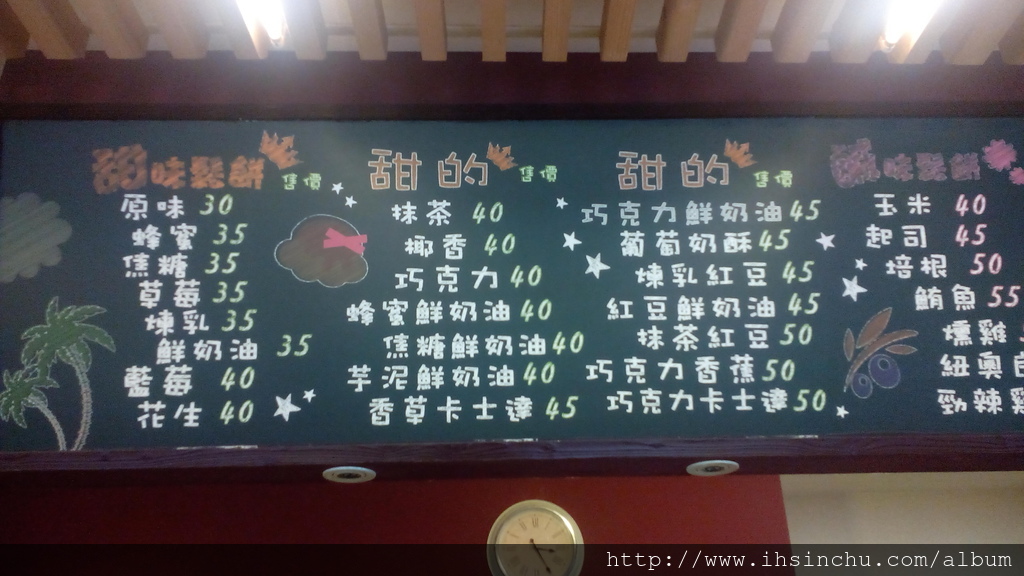 甜味鬆餅 售價
原味 30
蜂蜜 35
焦糖 35
草莓 35
煉乳 35
鮮奶油 35
藍莓 40
花生 40
甜的 售價
抹茶 40
椰香 40
巧克力 40
蜂蜜鮮奶油 40
焦糖鮮奶油 40
芋泥鮮奶油 40
香草卡士達 45
甜的 售價
巧克力鮮奶油 45
葡萄奶酥 45
煉乳紅豆 45
紅豆鮮奶油 45
抹茶紅豆 50
巧克力香蕉 50
巧克力卡士達 50
鹹味鬆餅
玉米 40
起司 45
培根 50
鮪魚 55
燻雞
紐奧
勁辣雞
http://www.ihsinchu.com/album